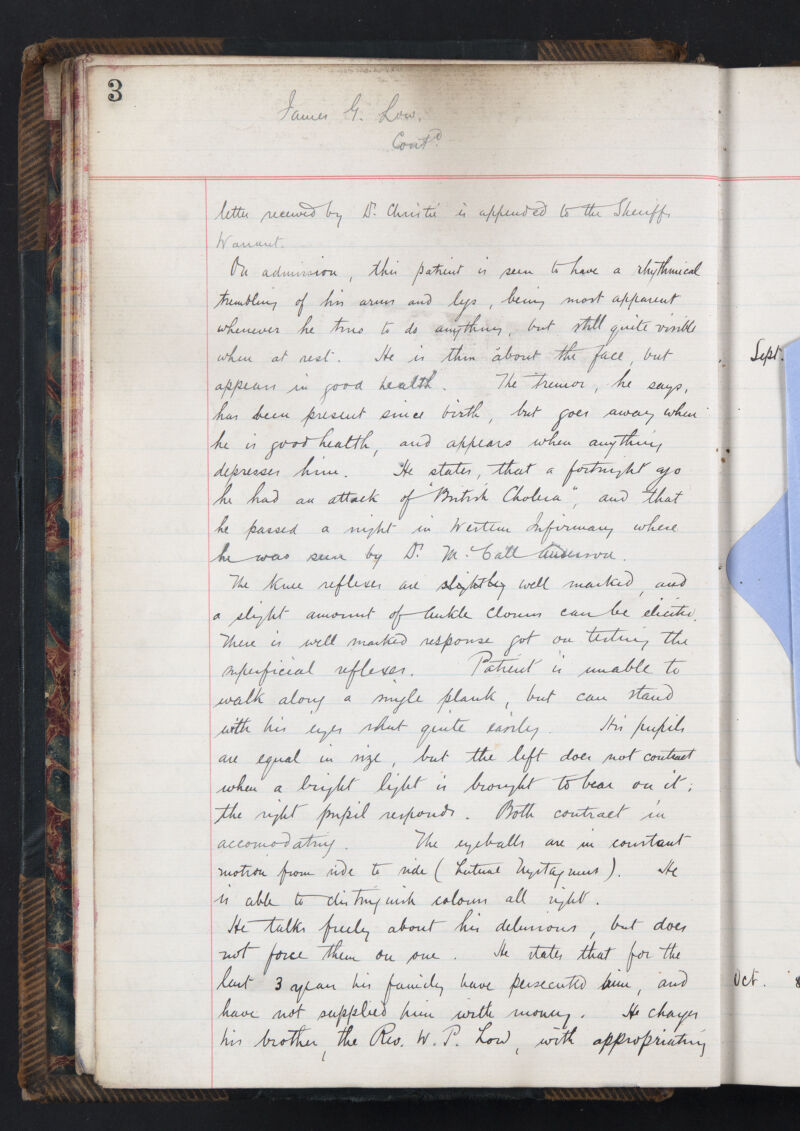 3
James G. Low.
Contd.
letter received by Dr. Christie is appended to the Sheriffs
Warrant.
On admission, this patient is seen to have a rhythmical
trembling of his arms and legs, being most apparent
whenever he tries to do anything, but still quite visible
when at rest. He is thin about the face, but
appears in good health. The tremor, he says,
has been present since birth, but goes away when
he is good health, and appears when anything
depresses him. He states, that a fortnight ago
he had an attack of "British Cholera", and that
he passed a night in Western Infirmary where
he was seen by Dr. McCall Anderson.
The knee reflexes are slightly well marked, and
a slight amount of Ankle Clonus can be elicited.
There is well marked response got on testing the
superficial reflexes. Patient is unable to
walk along a single plank, but can stand
with his eyes shut quite easily. His pupils
are equal in size, but the left does not contract
when a bright light is brought to bear on it;
the right pupil responds. Both contract in
accomodating. The eyeballs are in constant
motion from side to side (Lateral Nystagmus). He
is able to distinguish colours all right.
He talks freely about his delusions, but does
not force them on one. He states that for the
last 3 years his family have persecuted him, and
have not supplied him with money. He charges
his brother, the Rev. W. P. Low, with appropriating
Sept.
Oct.